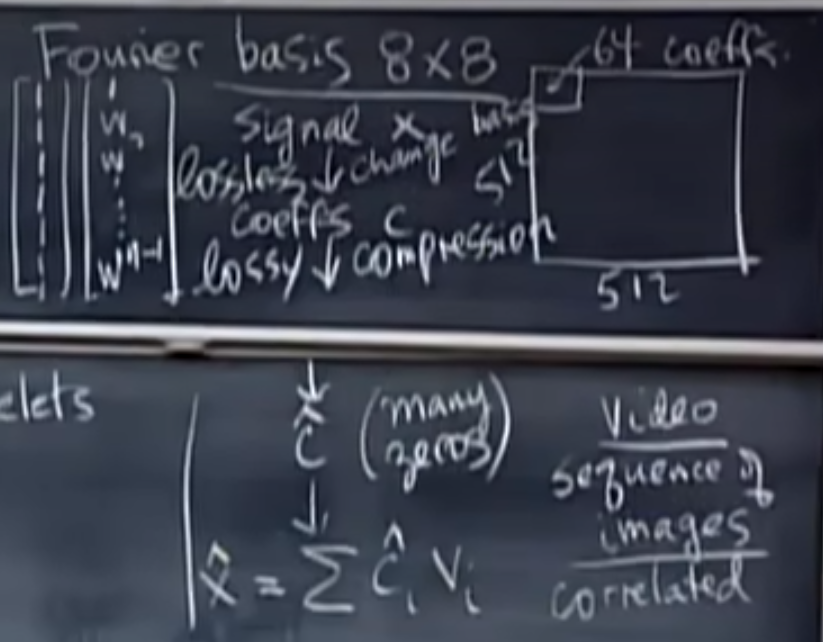 Fourier basis 8×8
64 coeffs.
1
W
W
⋮
Wⁿ⁻¹
signal x
lossless ↓ change basis
coeffs c
lossy ↓ compression
512
512
elets
ĉ (many zeros)
x̂ = Σ ĉᵢ vᵢ
Video
sequence of
images
correlated